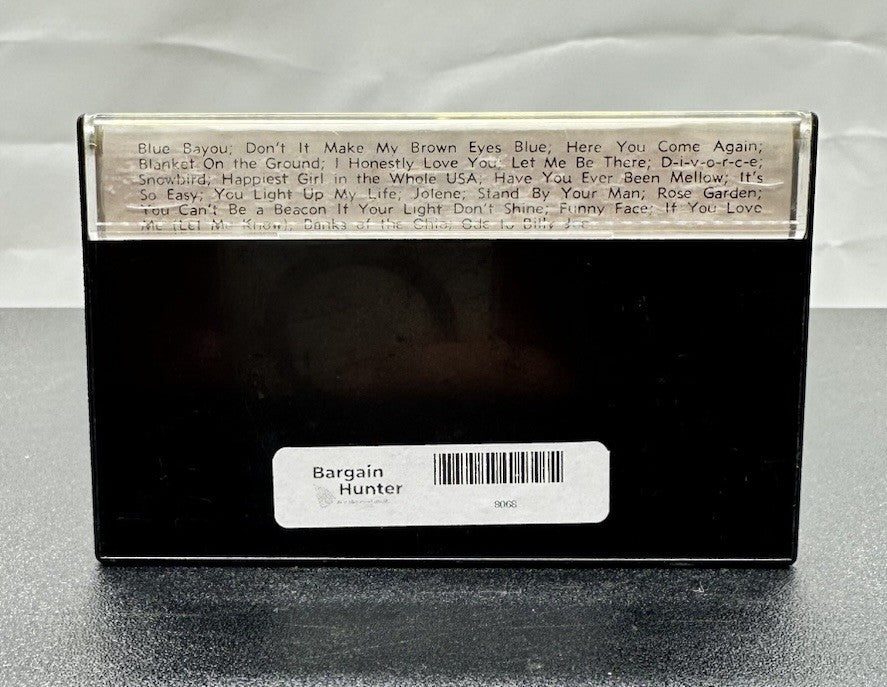 Blue Bayou; Don't It Make My Brown Eyes Blue; Here You Come Again;
Blanket On the Ground; I Honestly Love You; Let Me Be There; D-i-v-o-r-c-e;
Snowbird; Happiest Girl in the Whole USA; Have You Ever Been Mellow; It's
So Easy; You Light Up My Life; Jolene; Stand By Your Man; Rose Garden;
You Can't Be a Beacon If Your Light Don't Shine; Funny Face; If You Love
Me (Let Me Know); Banks of the Ohio; Ode To Billy Joe
Bargain
Hunter
8068